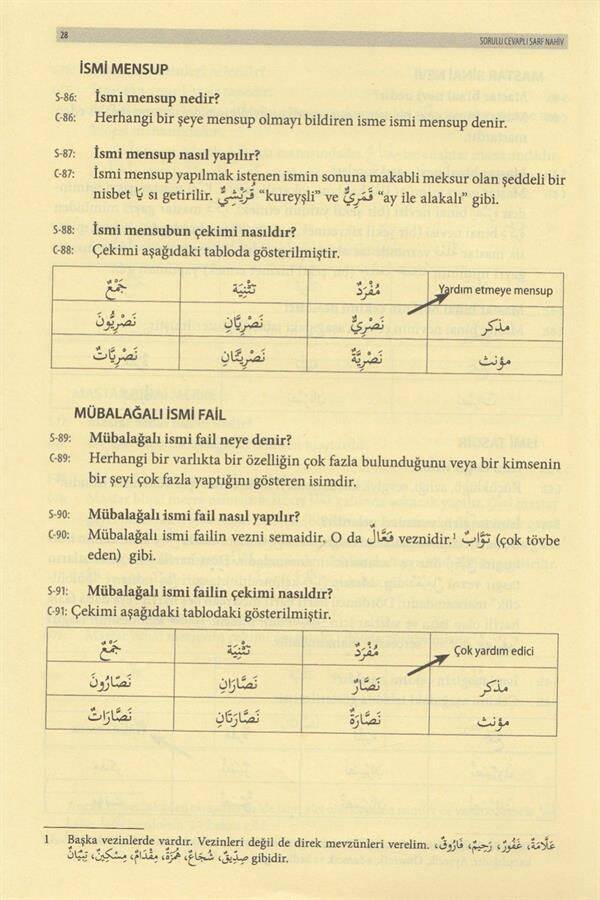 28
SORULU CEVAPLI SARF NAHİV
İSMİ MENSUP
S-86: İsmi mensup nedir?
C-86: Herhangi bir şeye mensup olmayı bildiren isme ismi mensup denir.
S-87: İsmi mensup nasıl yapılır?
C-87: İsmi mensup yapılmak istenen ismin sonuna makabli meksur olan şeddeli bir
nisbet يَا sı getirilir. قُرَيْشِيٌّ “kureyşli” ve قَمَرِيٌّ “ay ile alakalı” gibi.
S-88: İsmi mensubun çekimi nasıldır?
C-88: Çekimi aşağıdaki tabloda gösterilmiştir.
جَمْعٌ تَثْنِيَة مُفْرَدٌ Yardım etmeye mensup
نَصْرِيُّونَ نَصْرِيَّانِ نَصْرِيٌّ مذكر
نَصْرِيَّاتٌ نَصْرِيَّتَانِ نَصْرِيَّةٌ مؤنث
MÜBALAĞALI İSMİ FAİL
S-89: Mübalağalı ismi fail neye denir?
C-89: Herhangi bir varlıkta bir özelliğin çok fazla bulunduğunu veya bir kimsenin
bir şeyi çok fazla yaptığını gösteren isimdir.
S-90: Mübalağalı ismi fail nasıl yapılır?
C-90: Mübalağalı ismi failin vezni semaidir. O da فَعَّالٌ veznidir.¹ تَوَّابٌ (çok tövbe
eden) gibi.
S-91: Mübalağalı ismi failin çekimi nasıldır?
C-91: Çekimi aşağıdaki tablodaki gösterilmiştir.
جَمْعٌ تَثْنِيَة مُفْرَدٌ Çok yardım edici
نَصَّارُونَ نَصَّارَانِ نَصَّارٌ مذكر
نَصَّارَاتٌ نَصَّارَتَانِ نَصَّارَةٌ مؤنث
1 Başka vezinlerde vardır. Vezinleri değil de direk mevzünleri verelim. عَلَّامَةٌ، غَفُورٌ، رَحِيمٌ، فَارُوقٌ،
صِدِّيقٌ، شُجَاعٌ، هُمَزَةٌ، مِقْدَامٌ، مِسْكِينٌ، تِبْيَانٌ gibidir.